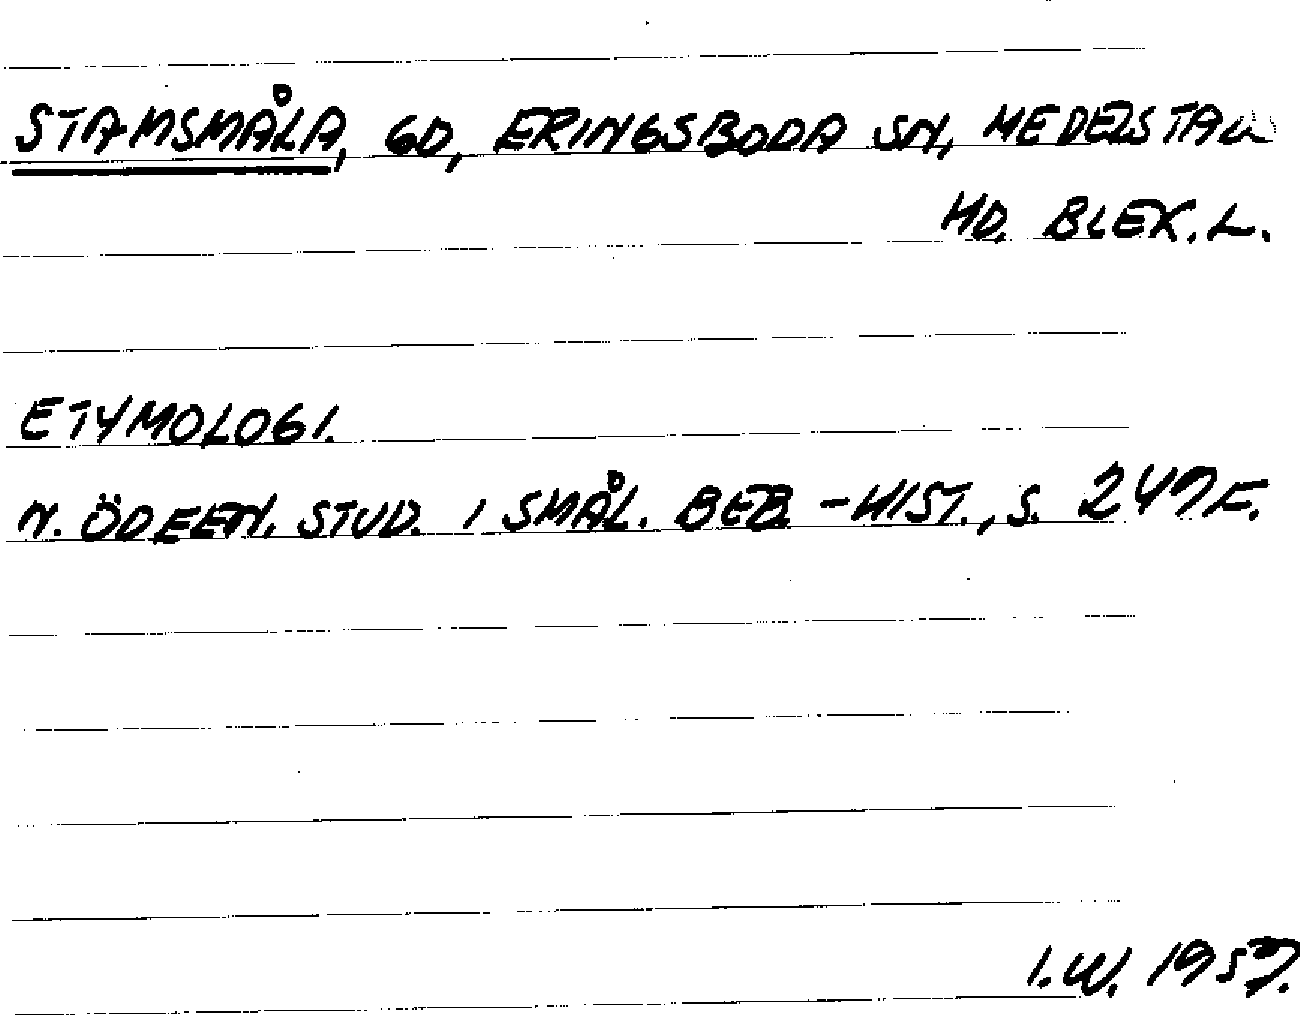 STAMSMÅLA, GD, ERINGSBODA SN, MEDELSTAD
HD. BLEK. L.
ETYMOLOGI.
N. ÖDEEN. STUD. I SMÅL. BEB. -HIST., S. 247 F.
I.W. 1957.